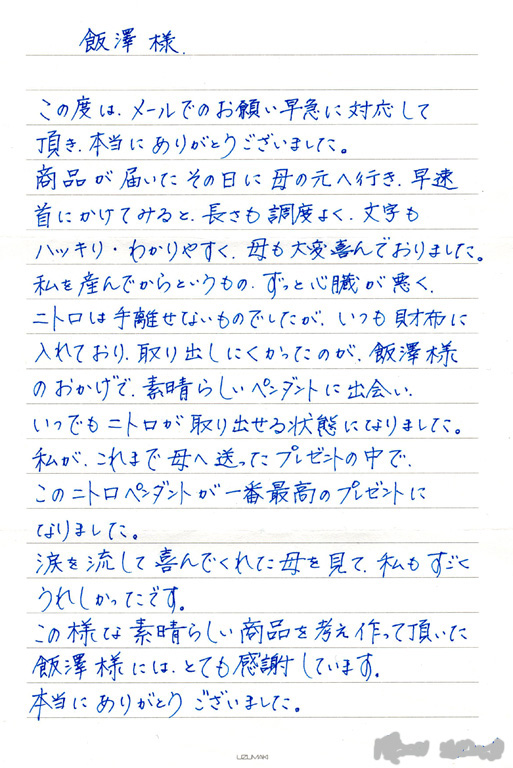 飯澤 様.
この度は、メールでのお願い早急に対応して
頂き、本当にありがとうございました。
商品が届いたその日に母の元へ行き、早速
首にかけてみると、長さも調度よく、文字も
ハッキリ・わかりやすく、母も大変喜んでおりました。
私を産んでからというもの、ずっと心臓が悪く、
ニトロは手離せないものでしたが、いつも財布に
入れており、取り出しにくかったのが、飯澤様
のおかげで、素晴らしいペンダントに出会い、
いつでもニトロが取り出せる状態になりました。
私が、これまで母へ送ったプレゼントの中で、
このニトロペンダントが一番最高のプレゼントに
なりました。
涙を流して喜んでくれた母を見て、私もすごく
うれしかったです。
この様な素晴らしい商品を考え作って頂いた
飯澤様には、とても感謝しています。
本当にありがとうございました。
UZUMAKI